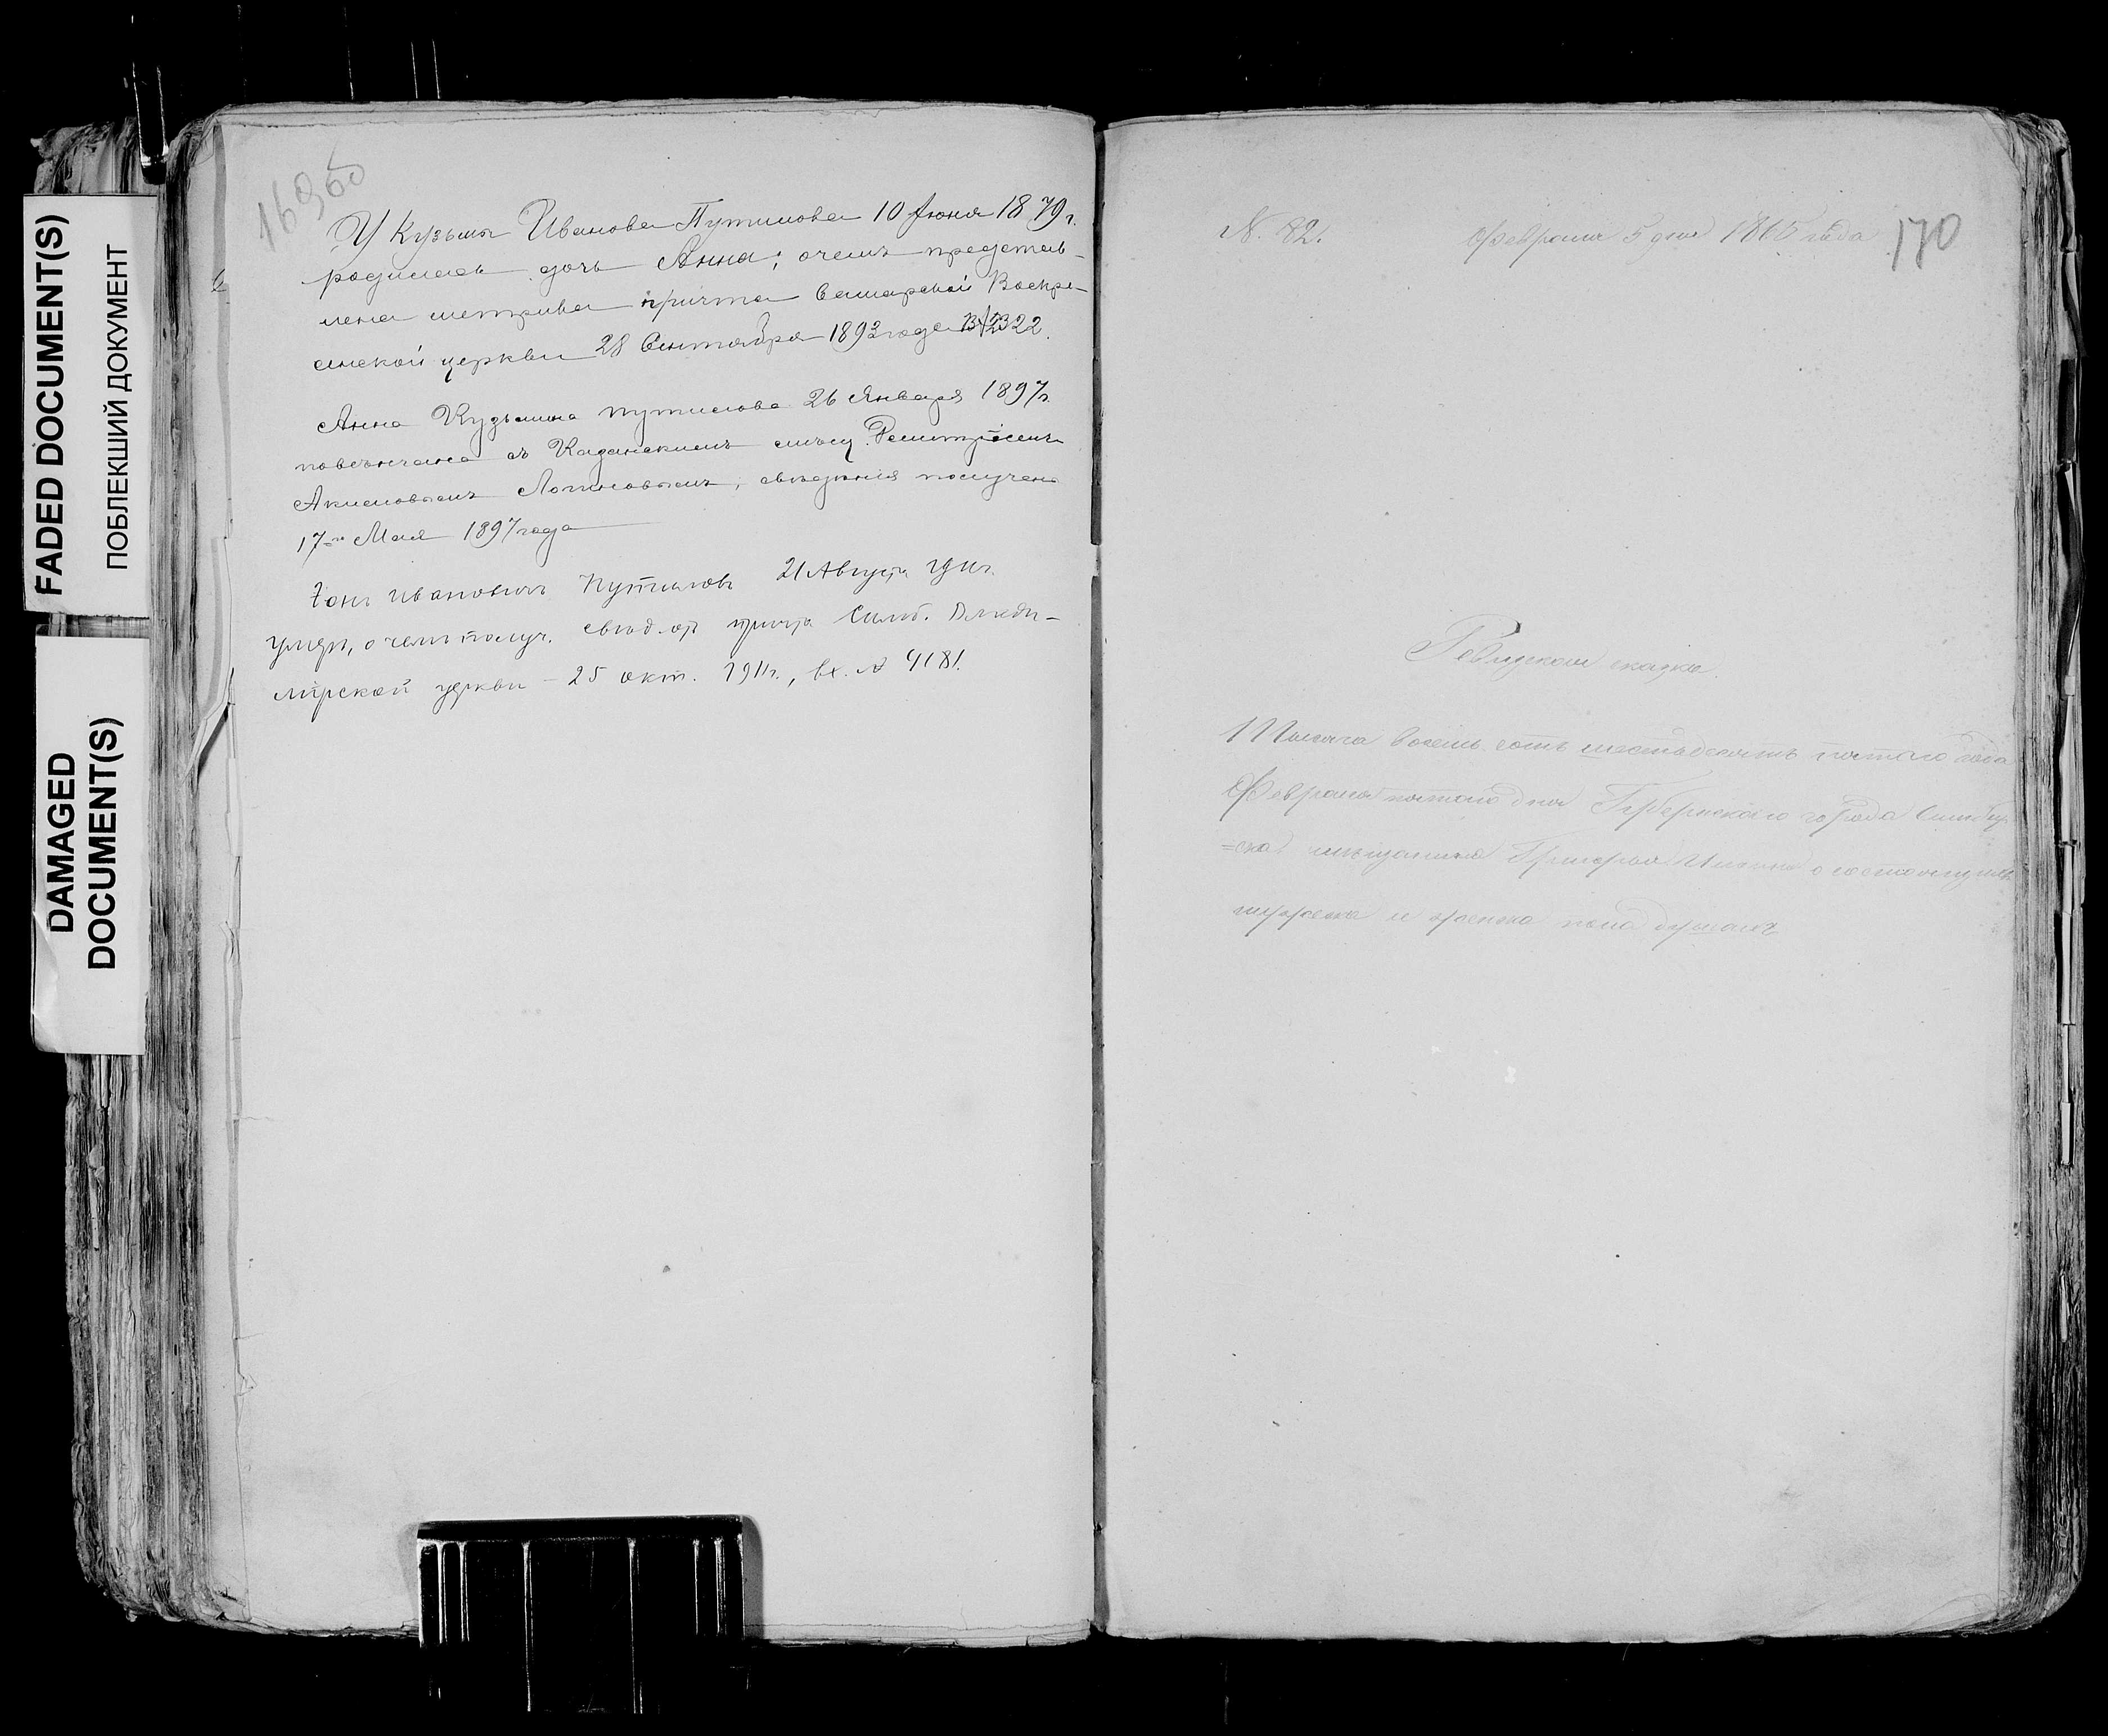 FADED DOCUMENT(S)
ПОБЛЕКШИЙ ДОКУМЕНТ
DAMAGED
DOCUMENT(S)
169об
У Кузьмы Иванова Путилова 10 Июня 1879 г.
родилась дочь Анна; о чемъ представ-
лена метрика причта Самарской Воскре-
сенской церкви 28 Сентября 1893 года 2322.
Анна Кузьмина Путилова 26 Января 1897 г.
повѣнчана съ Казанскимъ мѣщ.
Акимовымъ Логиновымъ, свѣдѣнія получено
17го Мая 1897 года
Иванович Путилов 21 Августа 1911 г.
умер, о чем получ. свѣд. от причта Симб. Влади-
мірской церкви - 25 окт. 1911 г., вх. № 4181.
N. 82.
Февраля 5 дня 1865 года
170
Ревизская сказка.
Тысяча восемь сотъ шестьдесятъ пятого года
Февраля пятого дня Губернскаго города Симбир
=ска мѣщанина Григорья о состоящихъ
мужеска и женска пола душахъ